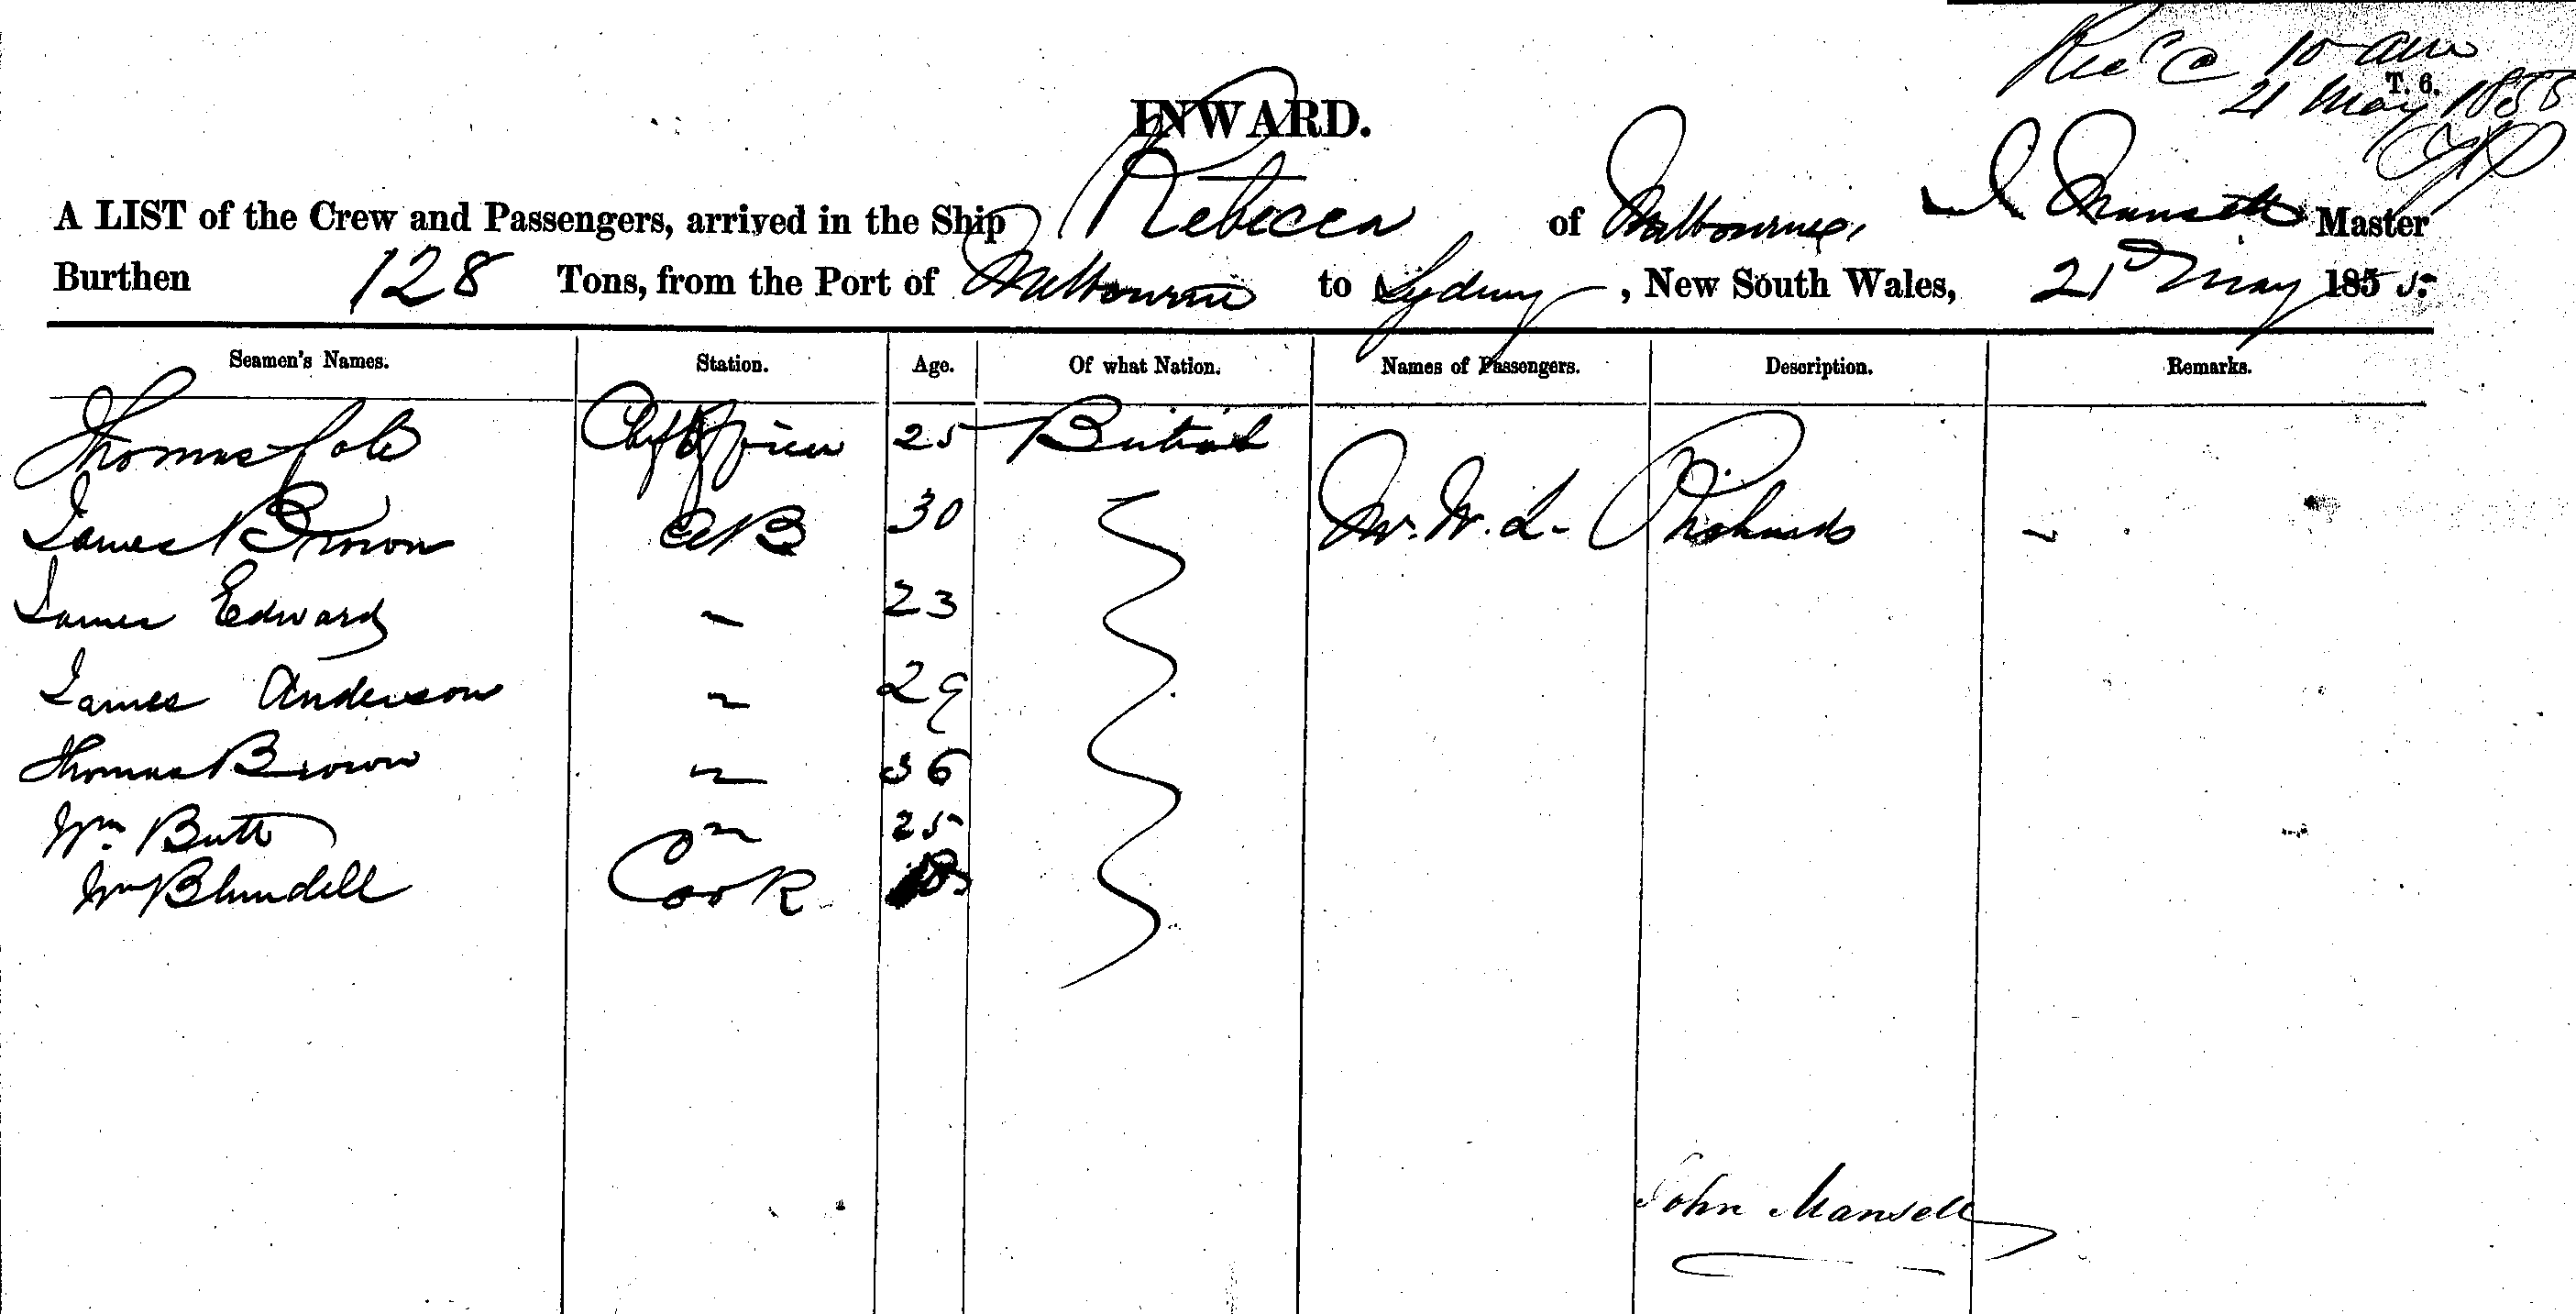 Recd @ 10 am
T. 6.
21 May 1855
INWARD.
A LIST of the Crew and Passengers, arrived in the Ship Rebecca of Melbourne, J Mansell Master
Burthen 128 Tons, from the Port of Melbourne to Sydney, New South Wales, 21st May 1855.
Seamen's Names. Station. Age. Of what Nation. Names of Passengers. Description. Remarks.
Thomas Cole Chf Officer 25 British
James Brown AB 30 Mr. W. L. Richards -
James Edward " 23
James Anderson " 29
Thomas Brown " 36
Wm Butt " 25
Wm Blundell Cook 18
John Mansell